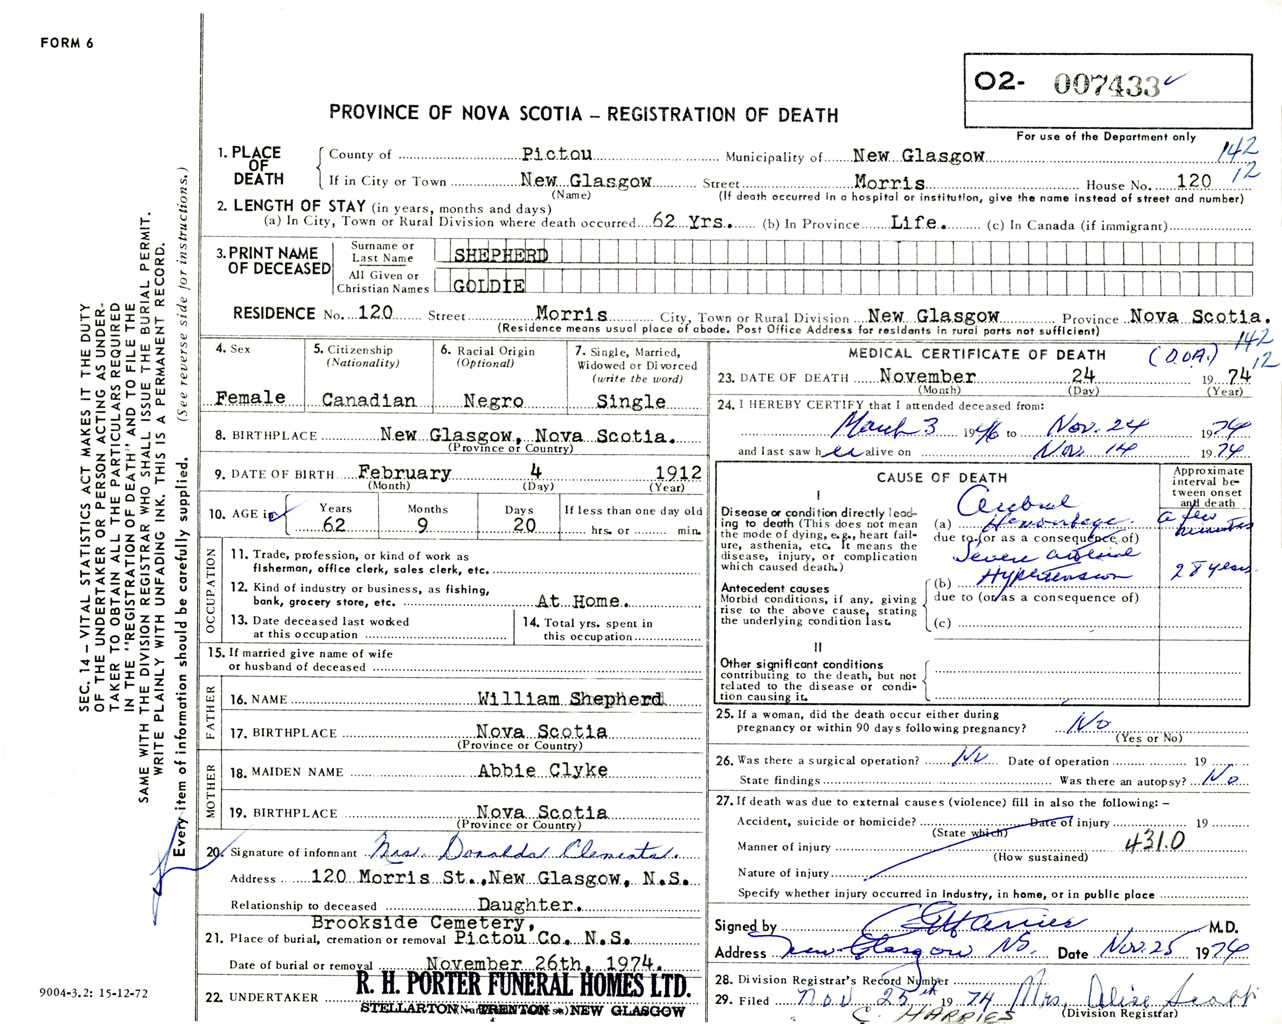 FORM 6
02- 007433
For use of the Department only
PROVINCE OF NOVA SCOTIA – REGISTRATION OF DEATH
142
12
1. PLACE OF DEATH
County of Pictou Municipality of New Glasgow
If in City or Town New Glasgow Street Morris House No. 120
(Name) (If death occurred in a hospital or institution, give the name instead of street and number)
2. LENGTH OF STAY (in years, months and days)
(a) In City, Town or Rural Division where death occurred 62 Yrs. (b) In Province Life. (c) In Canada (if immigrant)
3. PRINT NAME OF DECEASED
Surname or Last Name SHEPHERD
All Given or Christian Names GOLDIE
RESIDENCE No. 120 Street Morris City, Town or Rural Division New Glasgow Province Nova Scotia.
(Residence means usual place of abode. Post Office Address for residents in rural parts not sufficient)
4. Sex
Female
5. Citizenship
(Nationality)
Canadian
6. Racial Origin
(Optional)
Negro
7. Single, Married,
Widowed or Divorced
(write the word)
Single
8. BIRTHPLACE New Glasgow, Nova Scotia.
(Province or Country)
9. DATE OF BIRTH February 4 1912
(Month) (Day) (Year)
10. AGE in
Years Months Days
62 9 20
If less than one day old
hrs. or min.
OCCUPATION
11. Trade, profession, or kind of work as
fisherman, office clerk, sales clerk, etc.
12. Kind of industry or business, as fishing,
bank, grocery store, etc. At Home.
13. Date deceased last worked
at this occupation
14. Total yrs. spent in
this occupation
15. If married give name of wife
or husband of deceased
FATHER
16. NAME William Shepherd
17. BIRTHPLACE Nova Scotia
(Province or Country)
MOTHER
18. MAIDEN NAME Abbie Clyke
19. BIRTHPLACE Nova Scotia
(Province or Country)
20. Signature of informant Mrs. Donalda Clements.
Address 120 Morris St., New Glasgow, N.S.
Relationship to deceased Daughter.
Brookside Cemetery,
21. Place of burial, cremation or removal Pictou Co. N.S.
Date of burial or removal November 26th, 1974.
22. UNDERTAKER R. H. PORTER FUNERAL HOMES LTD.
STELLARTON TRENTON NEW GLASGOW
MEDICAL CERTIFICATE OF DEATH (D.O.A.)
142
12
23. DATE OF DEATH November 24 1974
(Month) (Day) (Year)
24. I HEREBY CERTIFY that I attended deceased from:
March 3 1946 to Nov. 24 1974
and last saw her alive on Nov. 14 1974
CAUSE OF DEATH
Approximate
interval be-
tween onset
and death
I
Disease or condition directly lead-
ing to death (This does not mean
the mode of dying, e.g., heart fail-
ure, asthenia, etc. It means the
disease, injury, or complication
which caused death.)
Cerebral
(a) Hemorrhage. a few minutes
due to (or as a consequence of)
Severe arterial
(b) Hypertension 28 years
due to (or as a consequence of)
(c)
Antecedent causes
Morbid conditions, if any, giving
rise to the above cause, stating
the underlying condition last.
II
Other significant conditions
contributing to the death, but not
related to the disease or condi-
tion causing it.
25. If a woman, did the death occur either during
pregnancy or within 90 days following pregnancy? No
(Yes or No)
26. Was there a surgical operation? No Date of operation 19
State findings Was there an autopsy? No
27. If death was due to external causes (violence) fill in also the following: –
Accident, suicide or homicide? Date of injury 19
(State which)
Manner of injury 431.0
(How sustained)
Nature of injury
Specify whether injury occurred in Industry, in home, or in public place
Signed by M.D.
Address New Glasgow NS. Date Nov. 25 1974
28. Division Registrar's Record Number
29. Filed Nov 25th 1974 Mrs. Alice Scott
(Division Registrar)
C. HARRIES
SEC. 14 – VITAL STATISTICS ACT MAKES IT THE DUTY
OF THE UNDERTAKER OR PERSON ACTING AS UNDER-
TAKER TO OBTAIN ALL THE PARTICULARS REQUIRED
IN THE "REGISTRATION OF DEATH" AND TO FILE THE
SAME WITH THE DIVISION REGISTRAR WHO SHALL ISSUE THE BURIAL PERMIT.
WRITE PLAINLY WITH UNFADING INK. THIS IS A PERMANENT RECORD.
Every item of information should be carefully supplied. (See reverse side for instructions.)
9004-3.2: 15-12-72